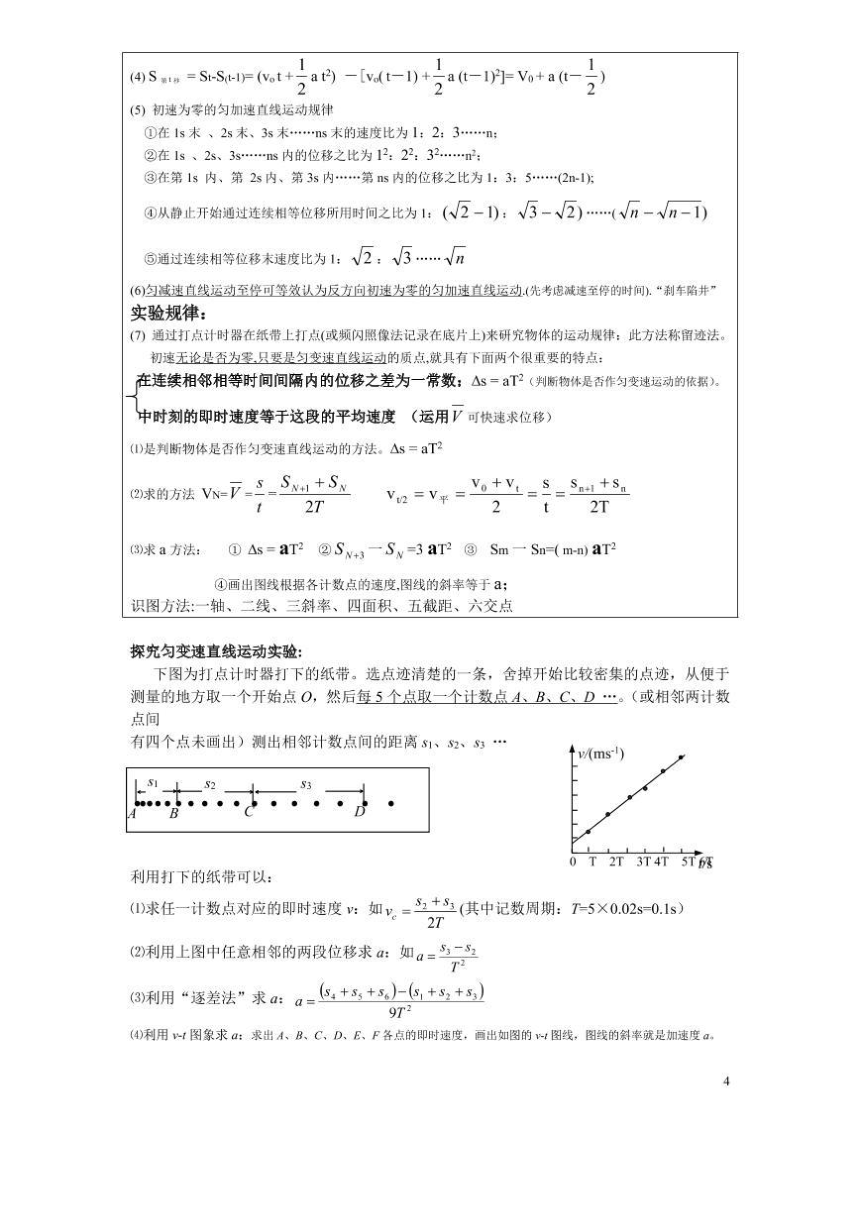 (4) S 第 t 秒 = St-S(t-1)= (vo t +1/2 a t²) －[vo( t－1) +1/2 a (t－1)²]= V0 + a (t－1/2)
(5) 初速为零的匀加速直线运动规律
①在 1s 末 、2s 末、3s 末……ns 末的速度比为 1：2：3……n；
②在 1s 、2s、3s……ns 内的位移之比为 1²：2²：3²……n²；
③在第 1s 内、第 2s 内、第 3s 内……第 ns 内的位移之比为 1：3：5……(2n-1);
④从静止开始通过连续相等位移所用时间之比为 1：(√2－1)：√3－√2)……(√n－√n－1)
⑤通过连续相等位移末速度比为 1：√2：√3……√n
(6)匀减速直线运动至停可等效认为反方向初速为零的匀加速直线运动.(先考虑减速至停的时间).“刹车陷井”
实验规律：
(7) 通过打点计时器在纸带上打点(或频闪照像法记录在底片上)来研究物体的运动规律：此方法称留迹法。
初速无论是否为零,只要是匀变速直线运动的质点,就具有下面两个很重要的特点：
在连续相邻相等时间间隔内的位移之差为一常数；Δs = aT²（判断物体是否作匀变速运动的依据）。
中时刻的即时速度等于这段的平均速度 （运用V̅可快速求位移）
⑴是判断物体是否作匀变速直线运动的方法。Δs = aT²
⑵求的方法 VN=V̅=s/t=(SN+1+SN)/2T vt/2 = v平 = (v0+vt)/2 = s/t = (sn+1+sn)/2T
⑶求 a 方法： ① Δs = aT² ②SN+3一SN=3 aT² ③ Sm一Sn=( m-n) aT²
④画出图线根据各计数点的速度,图线的斜率等于 a；
识图方法:一轴、二线、三斜率、四面积、五截距、六交点
探究匀变速直线运动实验:
下图为打点计时器打下的纸带。选点迹清楚的一条，舍掉开始比较密集的点迹，从便于
测量的地方取一个开始点 O，然后每 5 个点取一个计数点 A、B、C、D …。（或相邻两计数
点间
有四个点未画出）测出相邻计数点间的距离 s1、s2、s3 …
s1 s2 s3
A B C D
v/(ms-1)
0 T 2T 3T 4T 5T 6T t/s
利用打下的纸带可以：
⑴求任一计数点对应的即时速度 v：如vc=(s2+s3)/2T(其中记数周期：T=5×0.02s=0.1s）
⑵利用上图中任意相邻的两段位移求 a：如a=(s3－s2)/T²
⑶利用“逐差法”求 a：a=((s4+s5+s6)－(s1+s2+s3))/9T²
⑷利用 v-t 图象求 a：求出 A、B、C、D、E、F 各点的即时速度，画出如图的 v-t 图线，图线的斜率就是加速度 a。
4